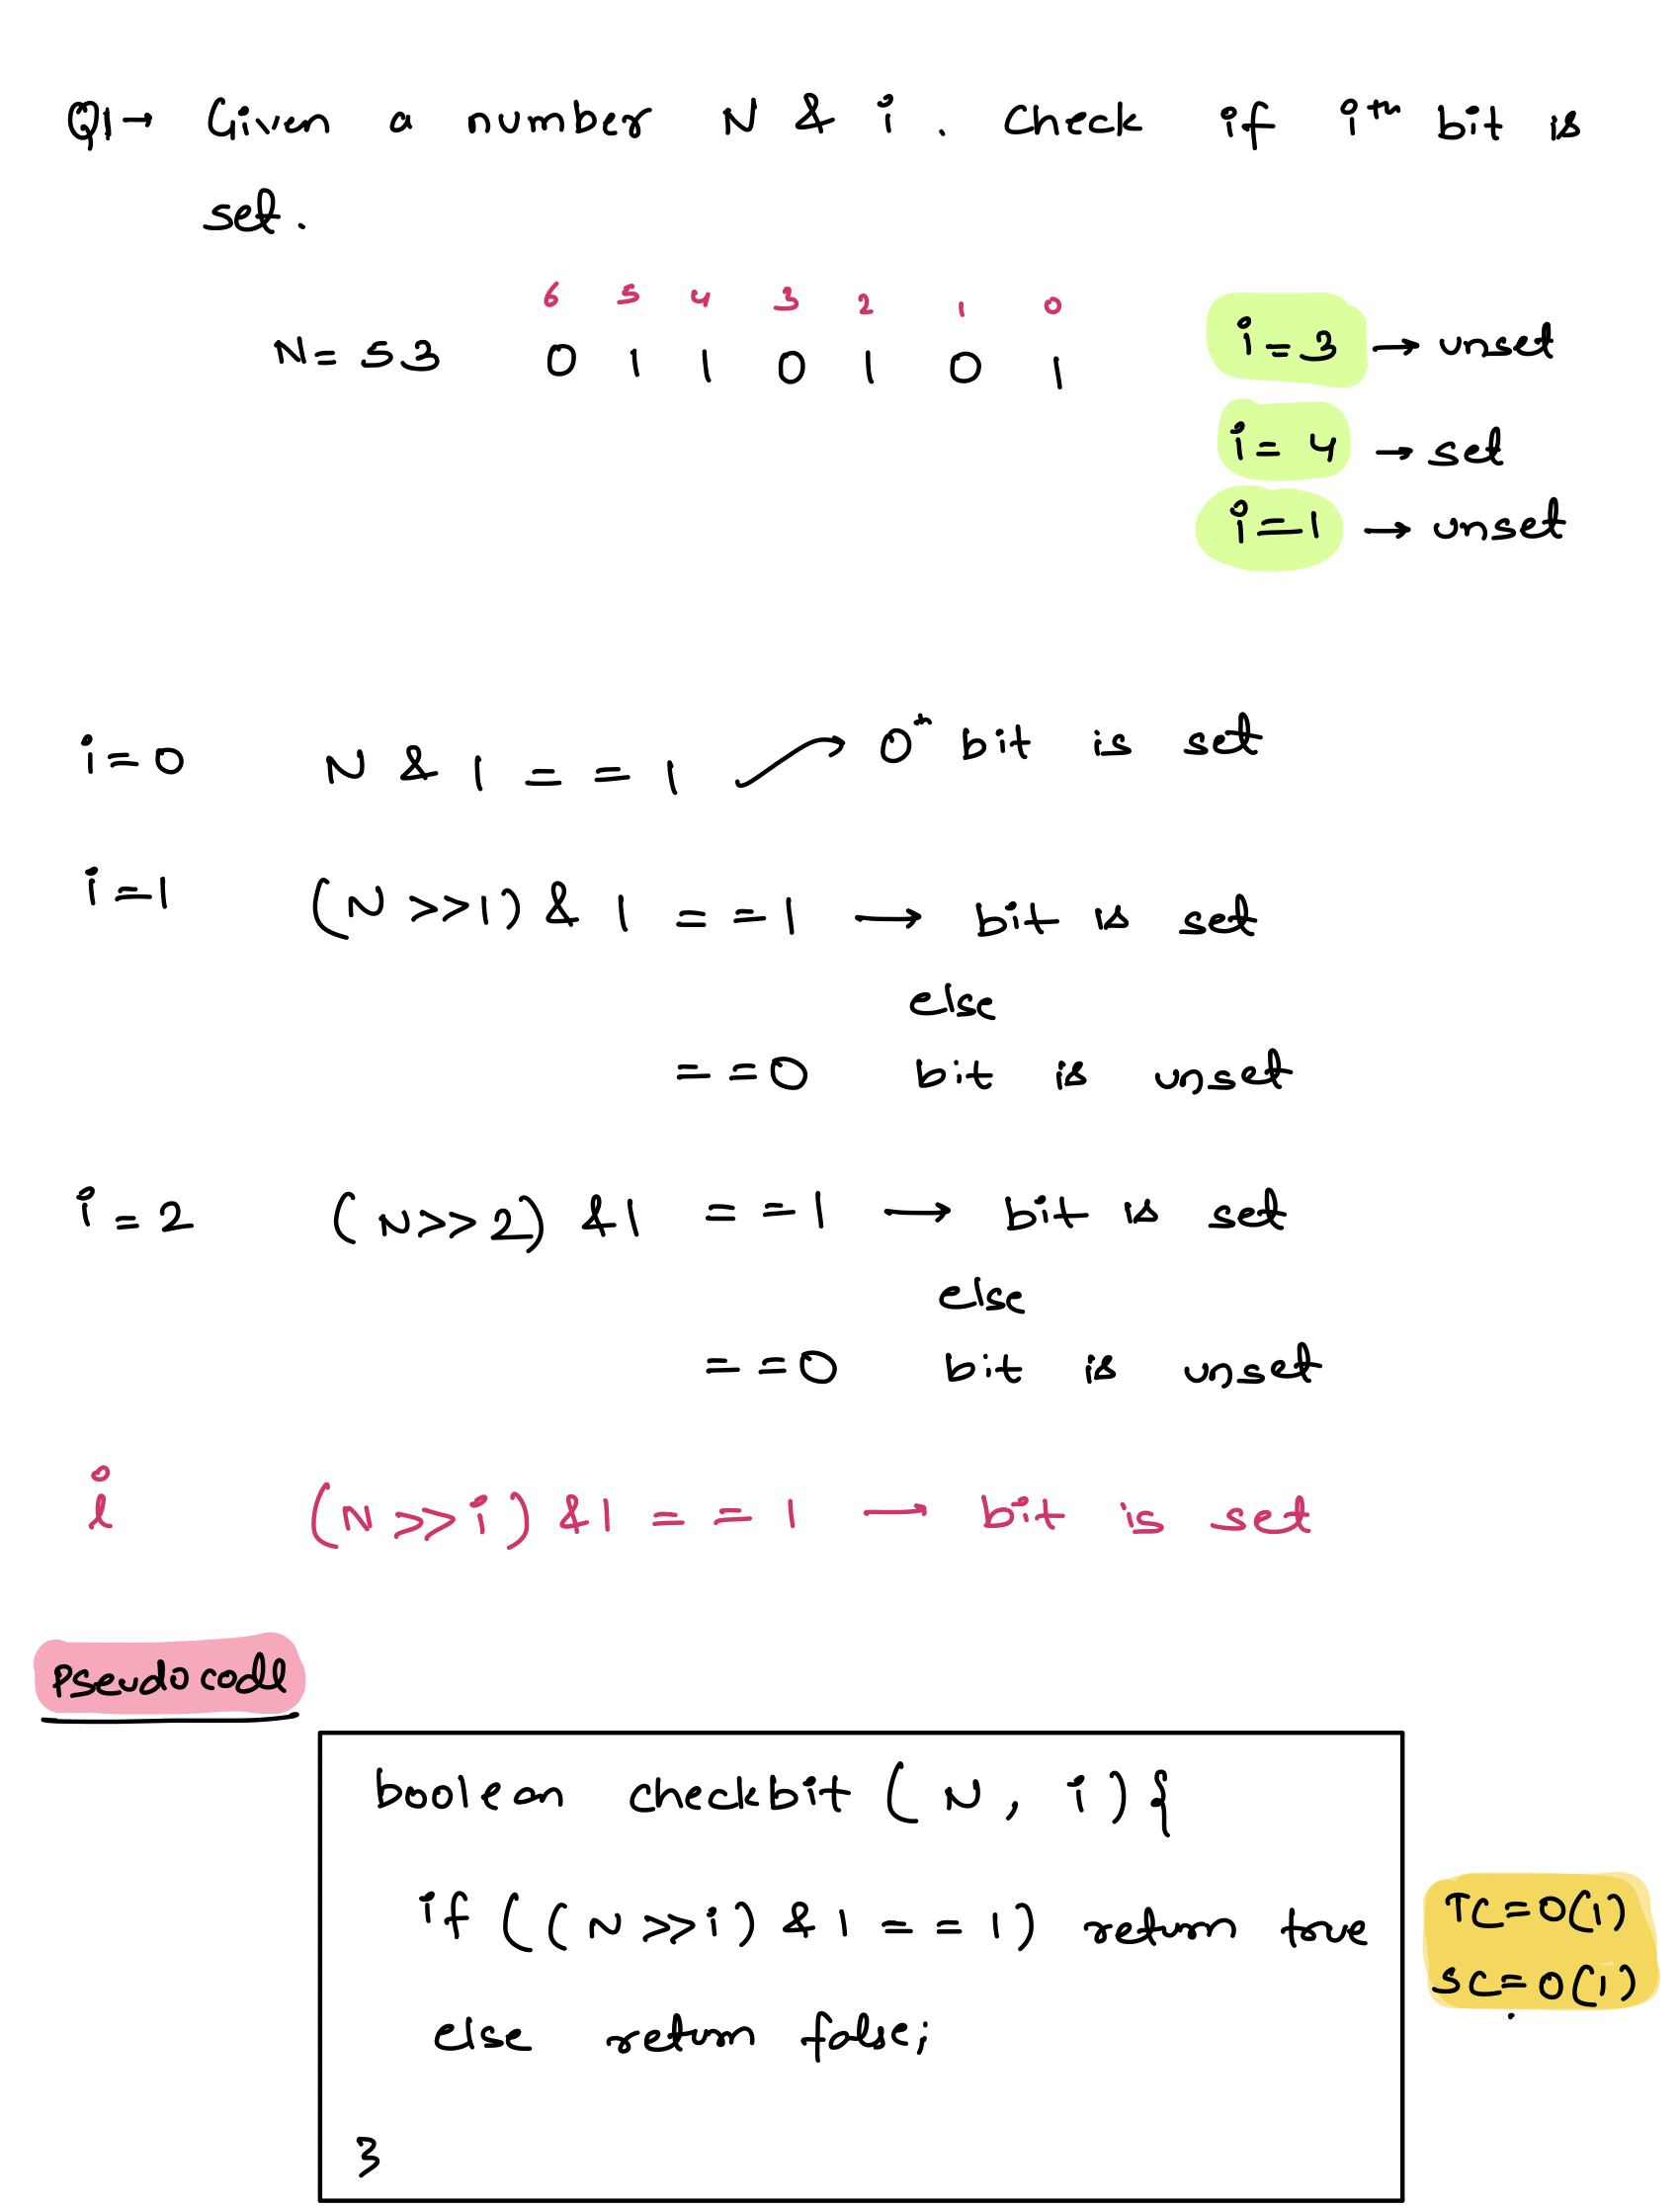 Q1→ Given a number N & i. Check if ith bit is
set.
6 5 4 3 2 1 0
N= 53 0 1 1 0 1 0 1
i=3 → unset
i=4 → set
i=1 → unset
i=0 N & 1 == 1 → 0th bit is set
i=1 (N>>1) & 1 ==1 → bit is set
else
==0 bit is unset
i=2 (N>>2) &1 ==1 → bit is set
else
==0 bit is unset
i (N>>i) &1 == 1 → bit is set
Pseudocode
boolean checkbit (N, i) {
if ((N>>i) & 1 == 1) return true
else return false;
}
TC=O(1)
SC=O(1)